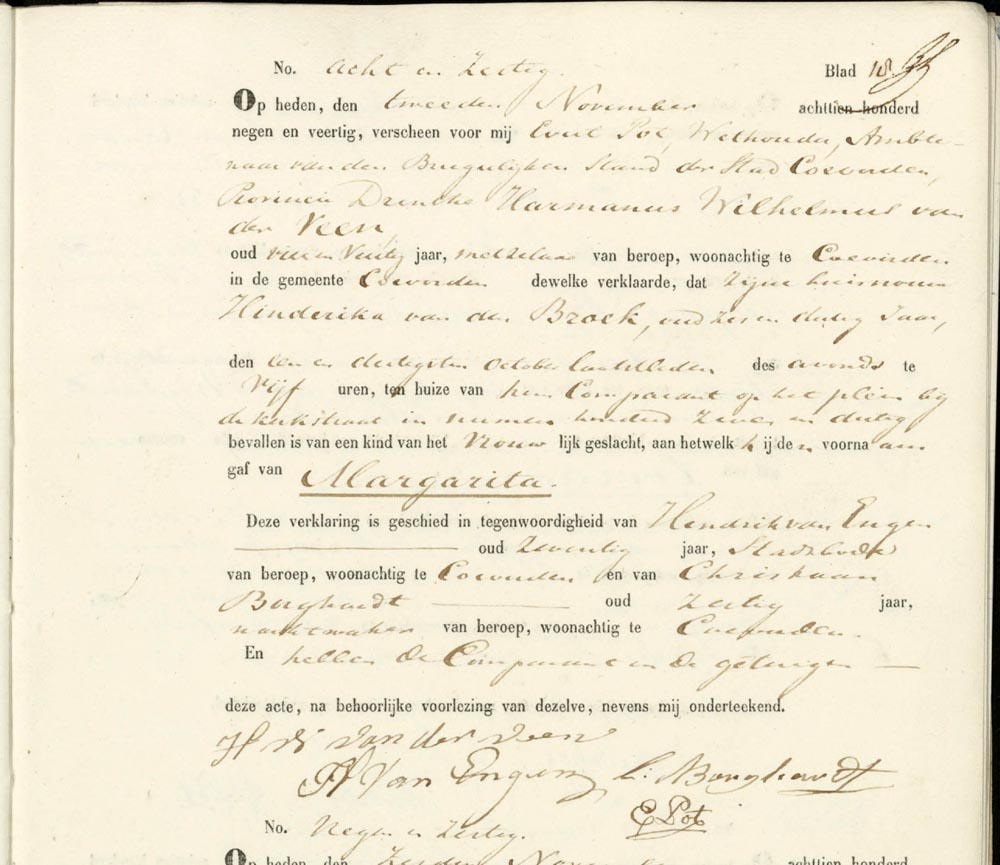 No. Acht en Zestig. Blad 18
Op heden, den tweeden November achttien honderd
negen en veertig, verscheen voor mij Evert Pot, Wethouder, Ambte-
naar van den Burgerlijken Stand der Stad Coevorden,
Provincie Drenthe Harmanus Wilhelmus van
der Veen,
oud vier en Veertig jaar, metzelaar van beroep, woonachtig te Coevorden
in de gemeente Coevorden dewelke verklaarde, dat Zijne huisvrouw
Hinderika van den Broek, oud zes en dertig Jaar,
den een en dertigsten October laatstleden des avonds te
Vijf uren, ten huize van hem Comparant op het plein bij
de kerkstraat in nummer honderd Zeven en dertig
bevallen is van een kind van het Vrouw lijk geslacht, aan hetwelk hij de n voorna am
gaf van Margarita.
Deze verklaring is geschied in tegenwoordigheid van Hendrik van Engen
oud Zeventig jaar, Stadsbode
van beroep, woonachtig te Coevorden en van Christiaan
Borghardt oud Zestig jaar,
nachtwaker van beroep, woonachtig te Coevorden.
En hebben de Comparant en de getuigen
deze acte, na behoorlijke voorlezing van dezelve, nevens mij onderteekend.
H W van der Veen
H Van Engen C: Borghardt
E Pot
No. Negen en Zestig.
Op heden, den Zesden November achttien honderd